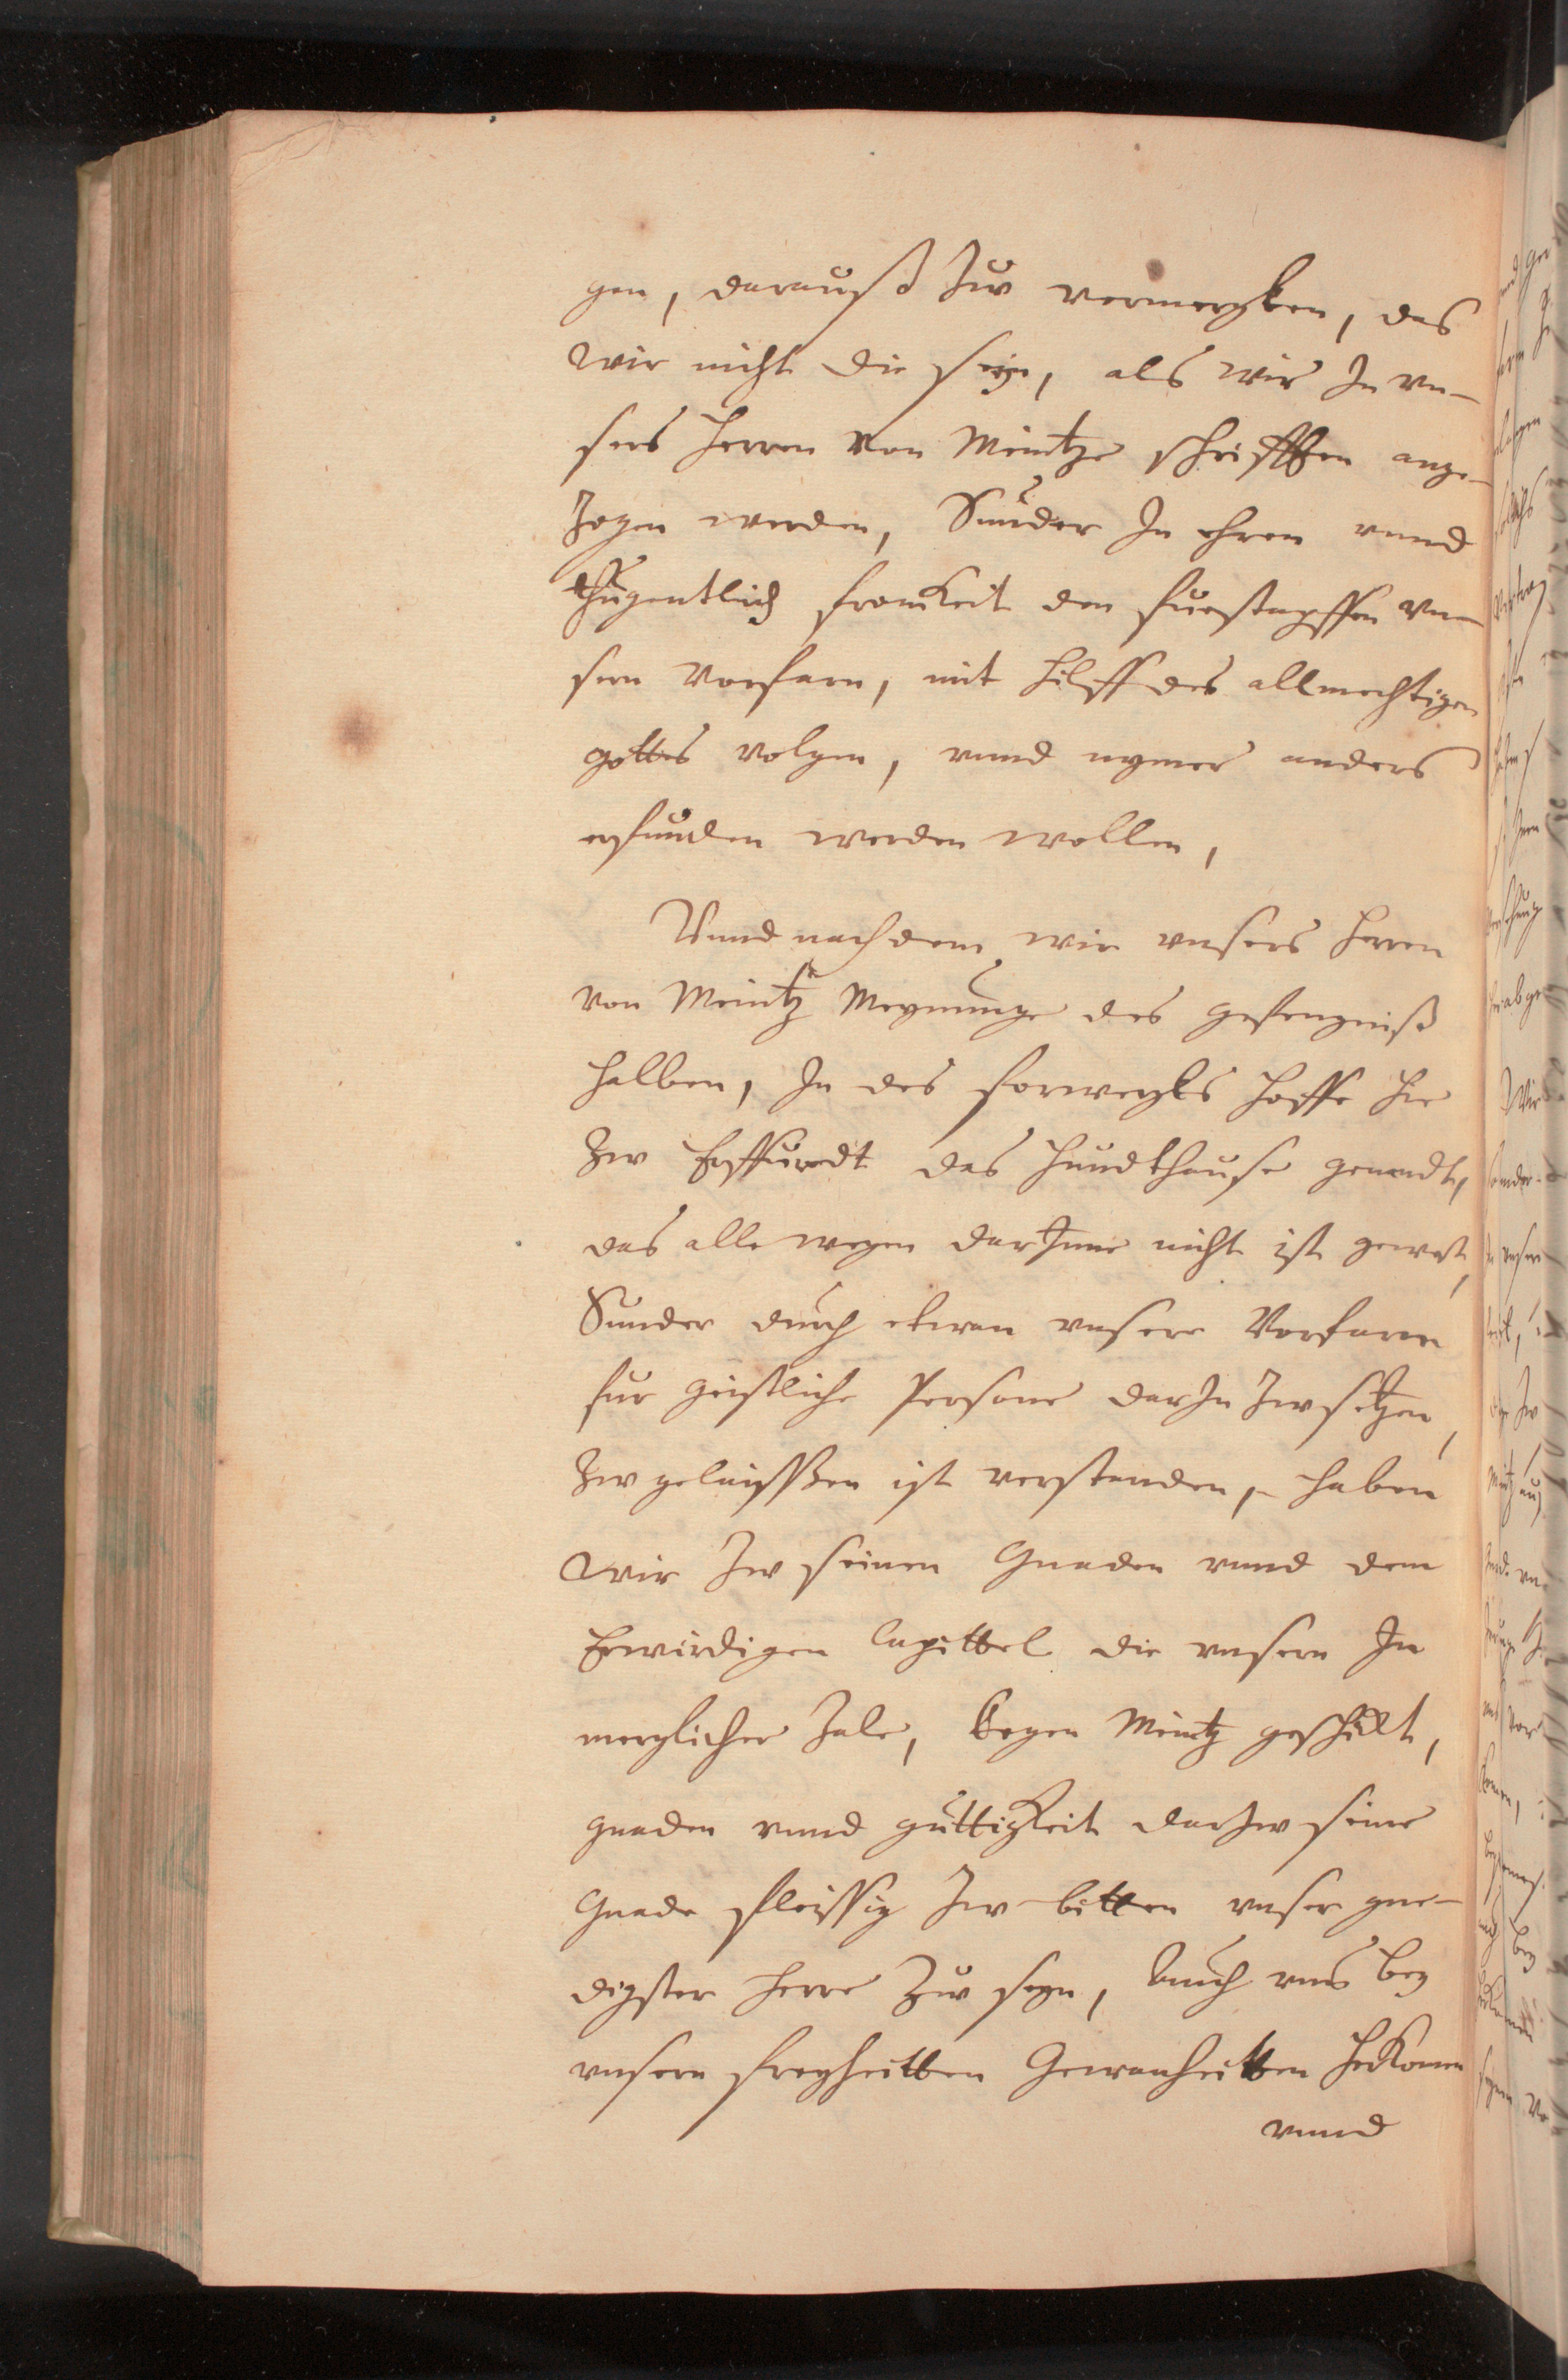 gen, darauß Zuv vermergken, das
wir nicht die sein, als wir In vn-
sers herren von Meintze schrifften ange-
zogen werden, Sunder In ehren vnnd
thugentlich fromkeit den fuesstapffen vn-
sern vorfarn, mit hilff des allmechtigen
gottes volgen, vnnd nymer anders
erfunden werden wollen,
Vnnd nachdem wir vnsers herren
von Meintz Meynunge des gefengniß
halben, In des forwergks hoffe hie
Zw Erffurdt das hundthause genandt,
das alle wegen darInne nicht ist gewest,
Sunder durch etwan vnsere Vorfaren
fur geistliche Persone darIn Zw setzen,
Zw gelaisssen ist verstanden, haben
wir Zw seinen Gnaden vnnd dem
Erwirdigen Capittel die vnsern In
merglicher Zale, kegen Meintz geschickt,
gnaden vnnd guttigkeit darZw seine
Gnade fleissig Zw bitten vnser gne-
digster herre Zw seyn, Auch vns bey
vnsern freyheitten Gewanheitten herkomen
vnnd